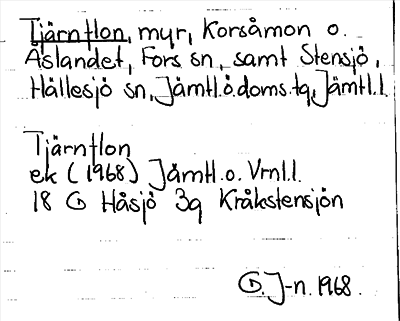 Tjärnflon, myr, Korsåmon o.
Åslandet, Fors sn, samt Stensjö,
Hällesjö sn, Jämtl.ö.doms.tg, Jämtl.l.
Tjärnflon
ek (1968) Jämtl.o. Vrnl.l.
18 G Håsjö 3g Kråkstensjön
G. J-n. 1968.